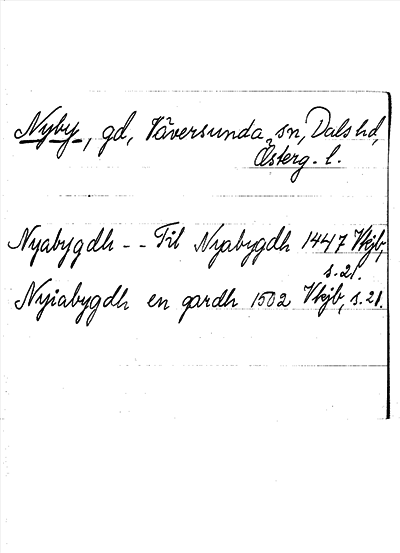 Nyby, gd, Väversunda sn, Dals hd,
Österg. l.
Nyabygdh -- Til Nyabygdh 1447 Vkjb,
s. 21.
Nyiabygdh en gardh 1502 Vkjb, s. 21.